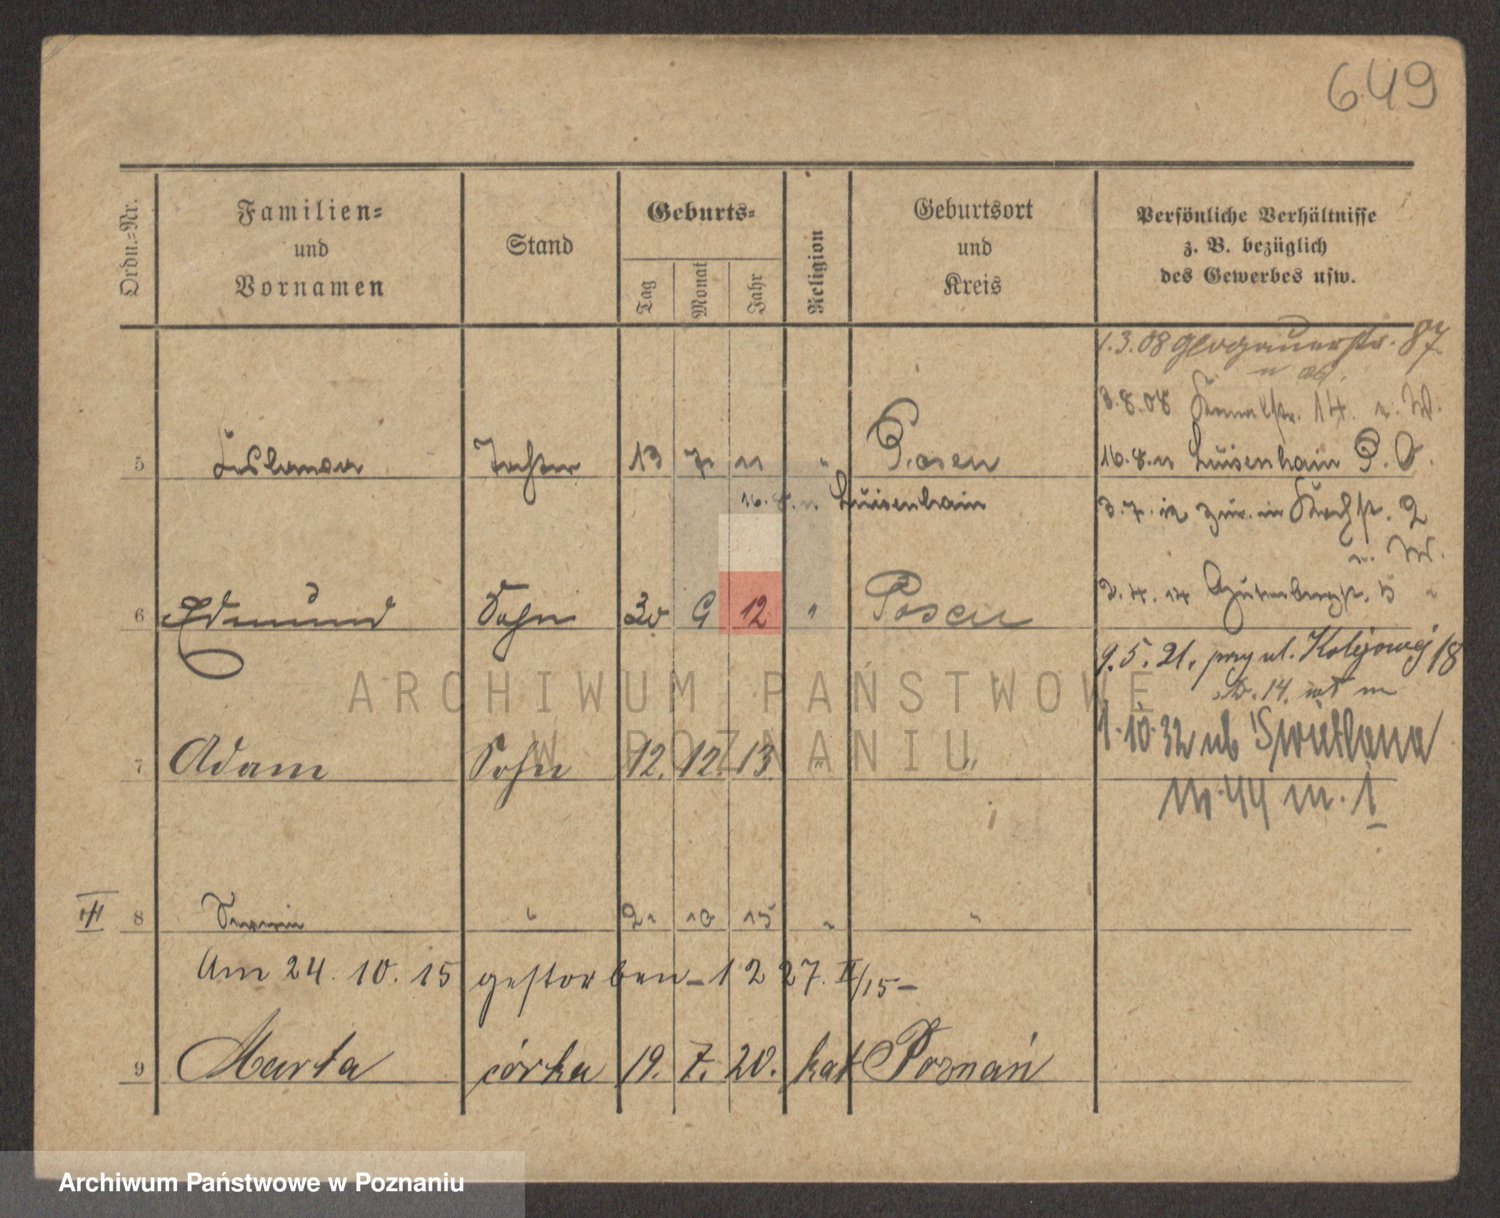 649
Ordn.=Nr.
Familien=
und
Vornamen
Stand
Geburts=
Tag
Monat
Jahr
Religion
Geburtsort
und
Kreis
Persönliche Verhältnisse
z. B. bezüglich
des Gewerbes usw.
1.3.08 Glogauerstr. 87
3.8.08 Kanalstr. 14. n. W.
5 Tochter 13 7 11 " Posen
16.8.11 Luisenhain P. O.
16.8.11 Luisenhain
3.7.12 zur. in 2
n. W.
6 Edmund Sohn 30 9 12 " Posen
3.4.14 Gutenbergstr. 5 "
9.5.21. przy ul. Kolejowej 18
14.
7 Adam Sohn 12. 12. 13. " "
1.10.32 ul. Swietlana
nr. 44 m. 1
III 8 " 2. 10 15 " "
Am 24. 10. 15 gestorben – 12 27. X/15 –
9 Marta córka 19. 7. 20. kat Poznań
ARCHIWUM PAŃSTWOWE
W POZNANIU
Archiwum Państwowe w Poznaniu